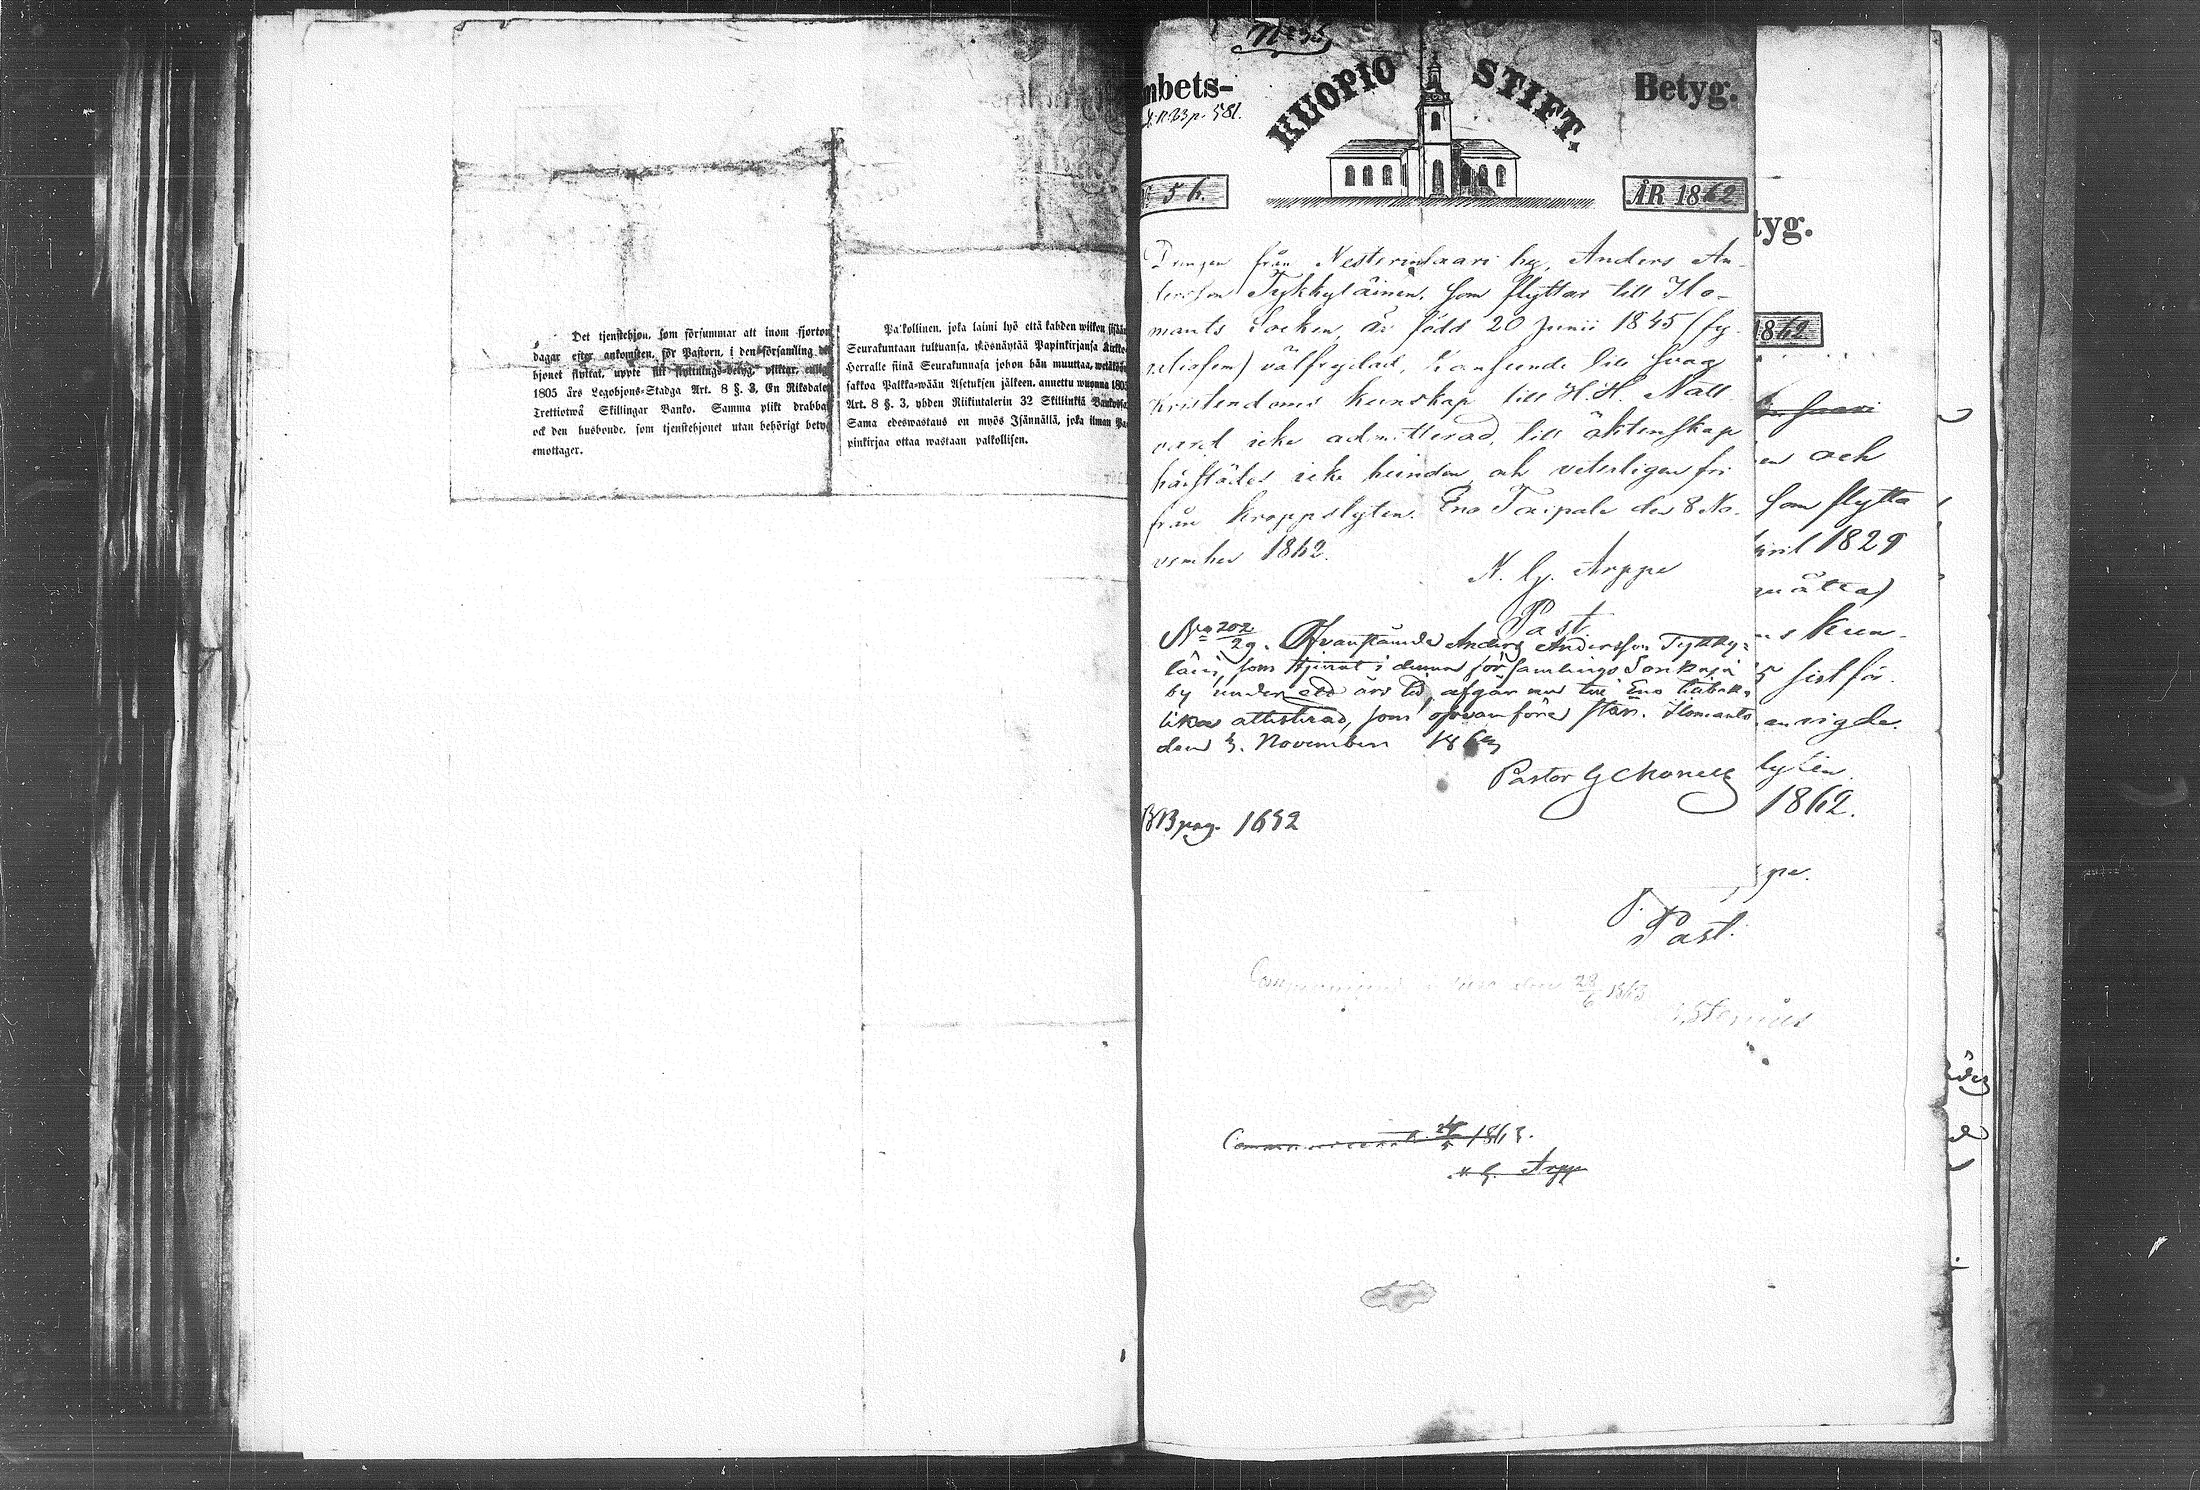 Det tjenstehjon, som försummar att inom fjorton
dagar efter ankomsten, för Pastorn, i den församling
hjonet flyttat, uppte sitt flyttnings-betyg, pliktar, enligt
1805 års Legohjons-Stadga Art. 8 §. 3, En Riksdaler
Trettiotwå Skillingar Banko. Samma plikt drabbar
ock den husbonde, som tjenstehjonet utan behörigt betyg
emottager.
Palkollinen, joka laimi lyö että kahden wiikon sisään
Seurakuntaan tultuansa, ylösnäytää Papinkirjansa Kirkko-
Herralle siinä Seurakunnasa johon hän muuttaa, wetäköön
sakkoa Palkka-wään Asetuksen jälkeen, annettu wuonna 1805
Art. 8 §. 3, yhden Riikintalerin 32 Skillinkiä Bankossa
Sama edeswastaus on myös Isännällä, joka ilman Pa-
pinkirjaa ottaa wastaan palkollisen.
No 35
mbets-
KUOPIO STIFT.
Betyg.
p. 581.
56.
ÅR 1862
Drengen från Nesterinsaari by, Anders An-
dersson Tykkyläinen, som flyttar till Ilo-
mants Socken, är född 20 Junii 1845 (fy-
retiofem) välfrejdad, till svag
Kristendoms kunskap till H. H. Natt
vard icke admitterad, till äktenskap
härstädes icke hinden och veterligen fri
från kroppslyten. Eno Toripala den 8 No-
vember 1862.
N. G. Arppe
Past.
No 202/29. Ofvannämnde Anders Andersson Tykky-
läin, som tjenat i denna församlings Sonkaja
by under ett års tid, afgår nu till Eno
lika attesterad, som ofvanföre står. Ilomants
den 3. November 1863
Pastor
BB pag. 1632
P.
Past.
den 28/6 1863
1863.
N. G. Arpp
tyg.
1862
saari
en och
som flytta
April 1829
åtta)
s kun-
5 sist för-
lyten.
1862.
pe.